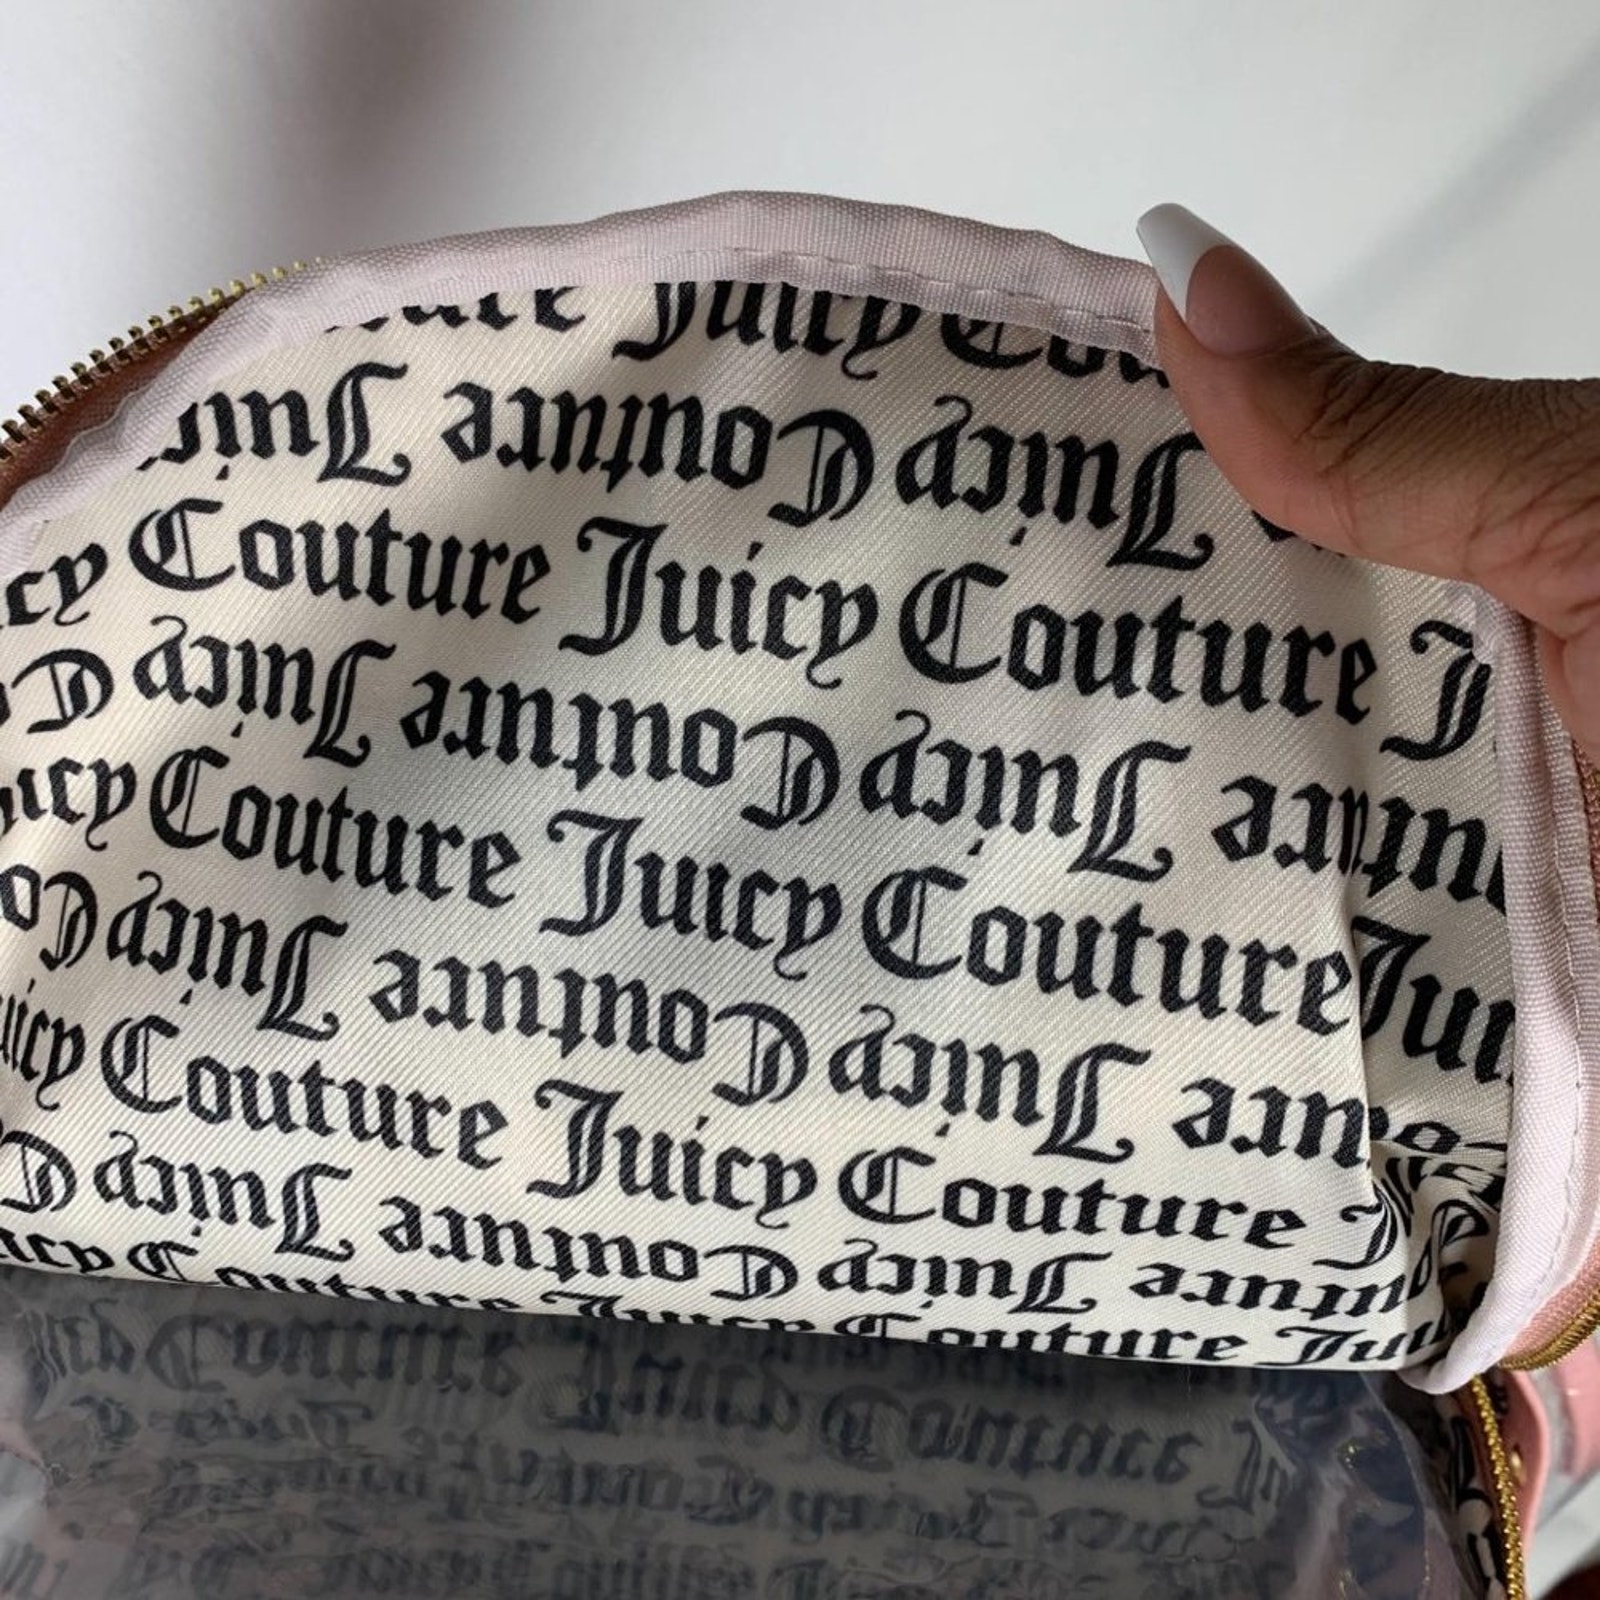 Juicy Cou
Juic Couture Juicy
cy Couture Juicy Couture J
Juicy Couture Juicy
uicy Couture Juicy Couture Jui
Co Juicy Couture Juicy
uicy Couture Juicy Couture J
Juicy Couture Juicy
icy Couture Juicy Couture Jui